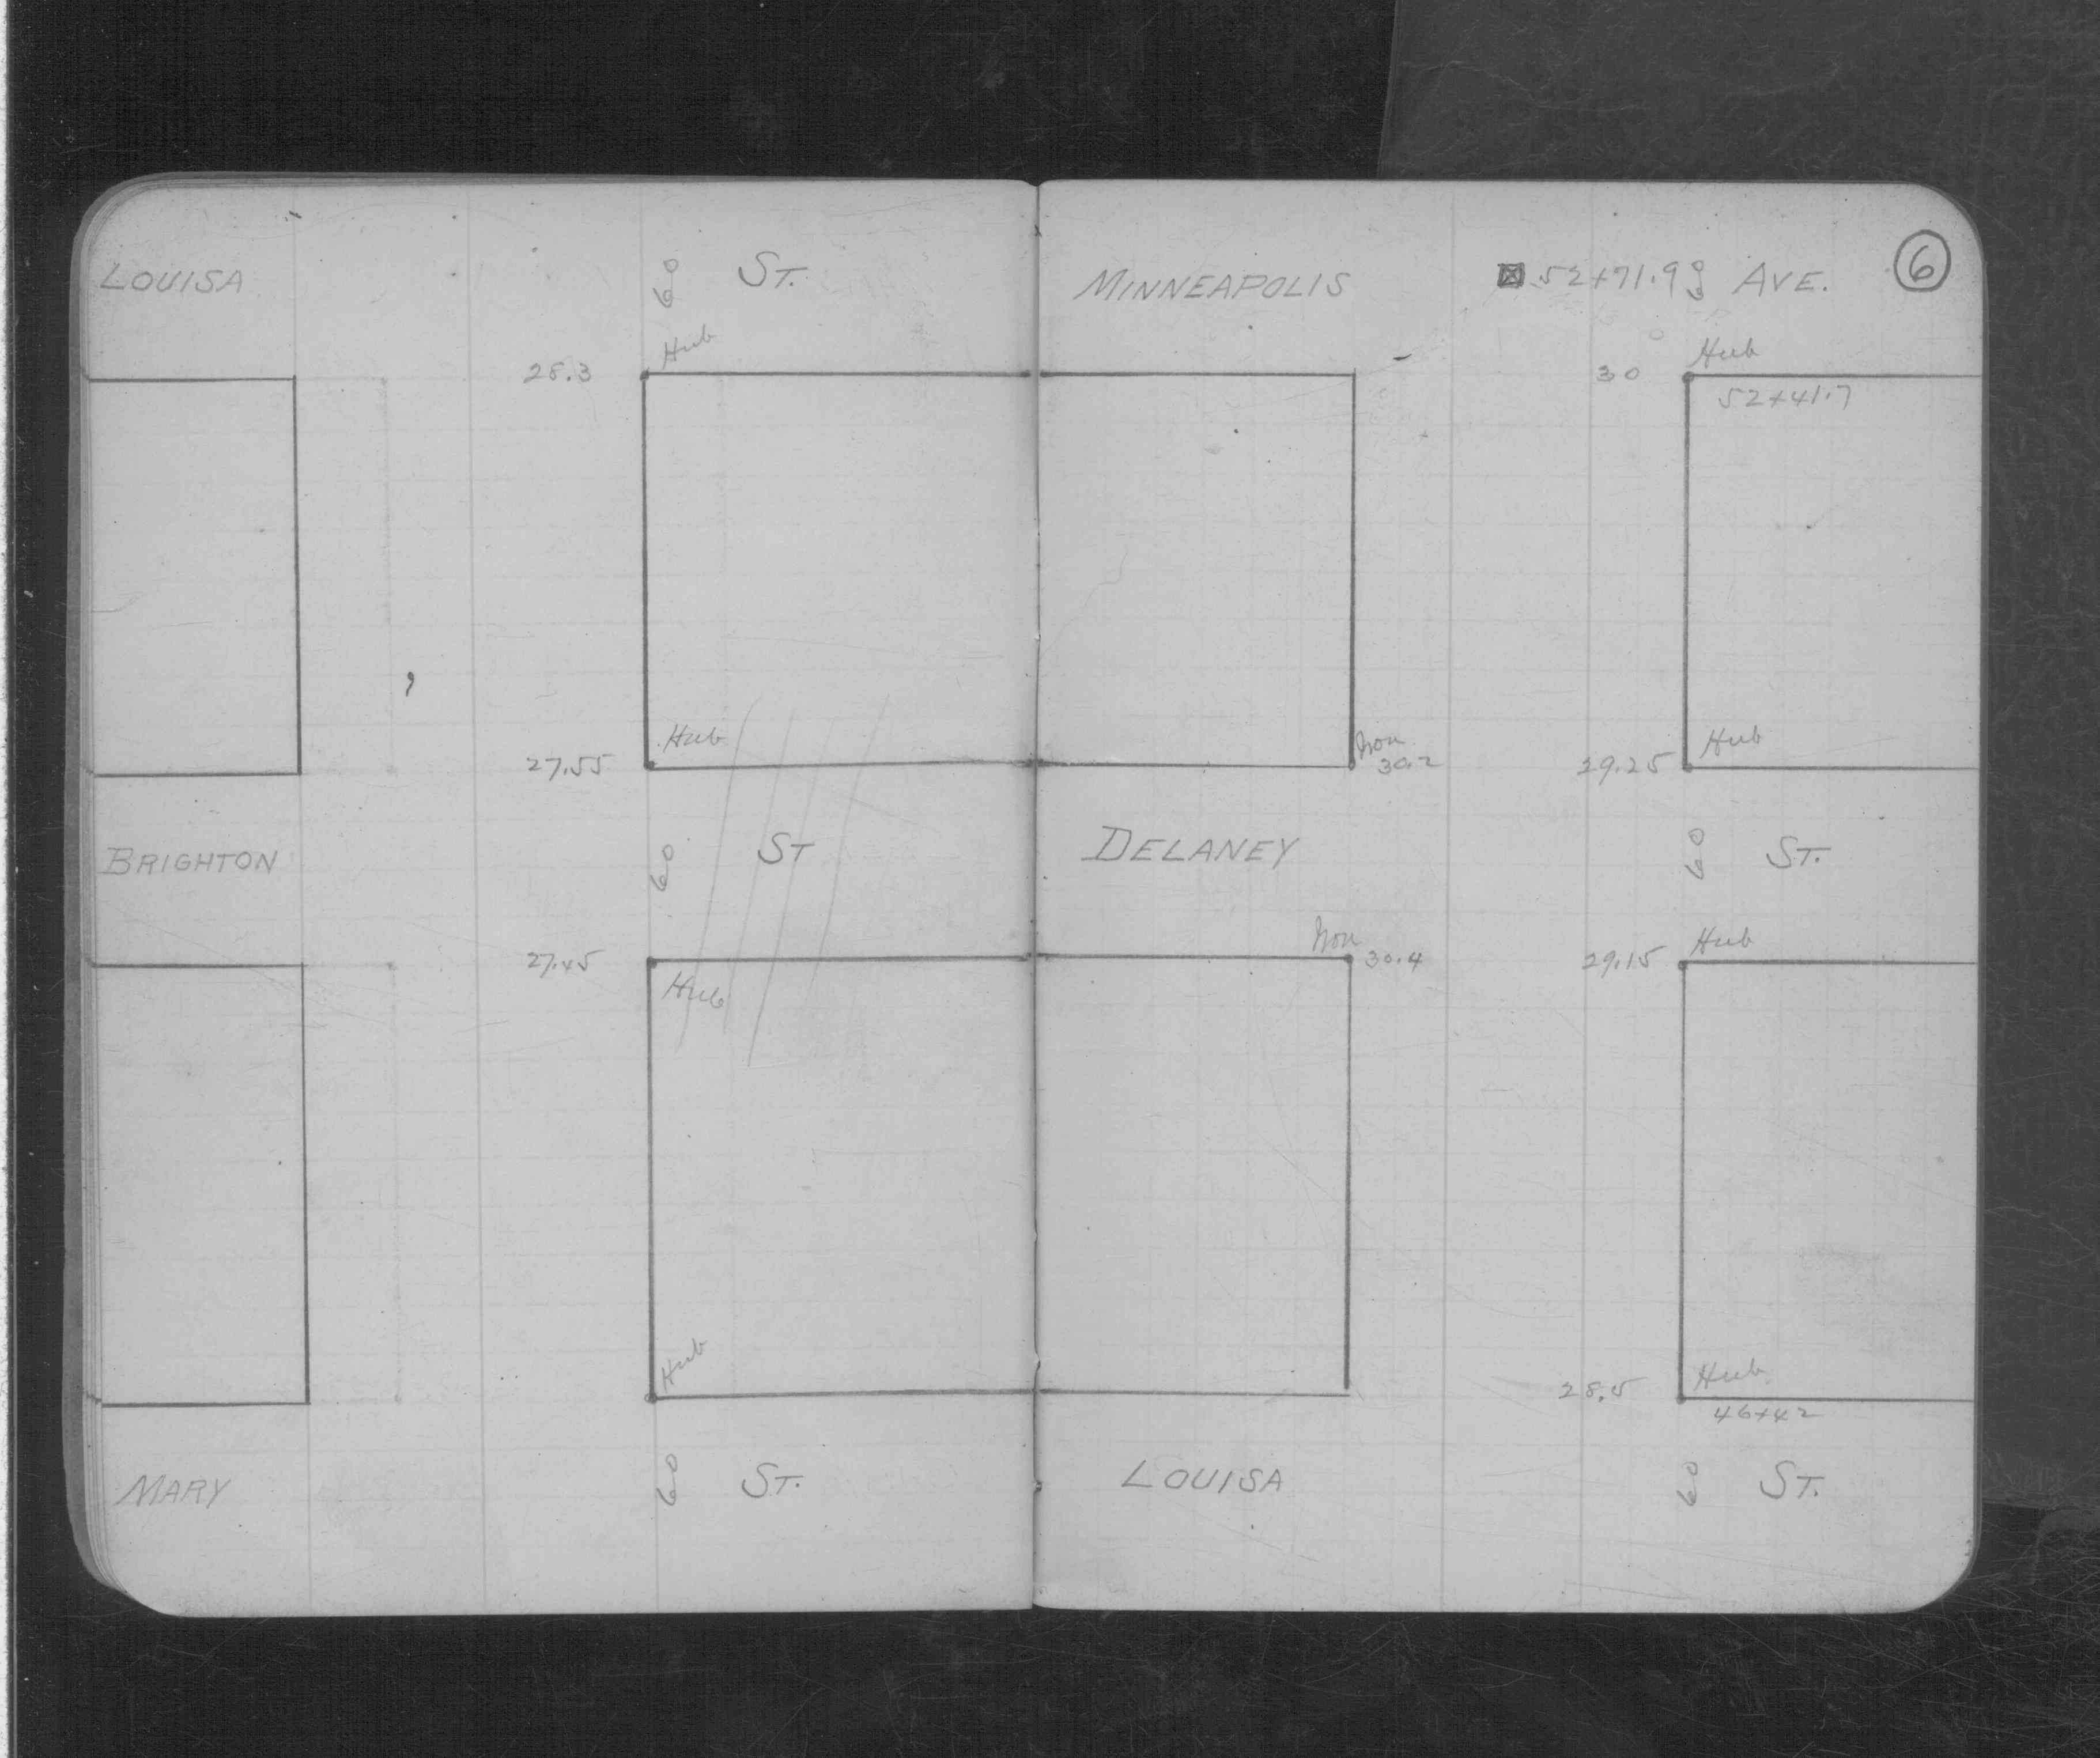 LOUISA 60 ST.
Hub
28.3
Hub
27.55
BRIGHTON 60 ST
27.45
Hub
Hub
MARY 60 ST.
6
MINNEAPOLIS 52+71.9 60 AVE.
Hub
30
52+41.7
Iron Hub
30.2 29.25
DELANEY 60 ST.
Iron Hub
30.4 29.15
Hub
28.5
46+42
LOUISA 60 ST.